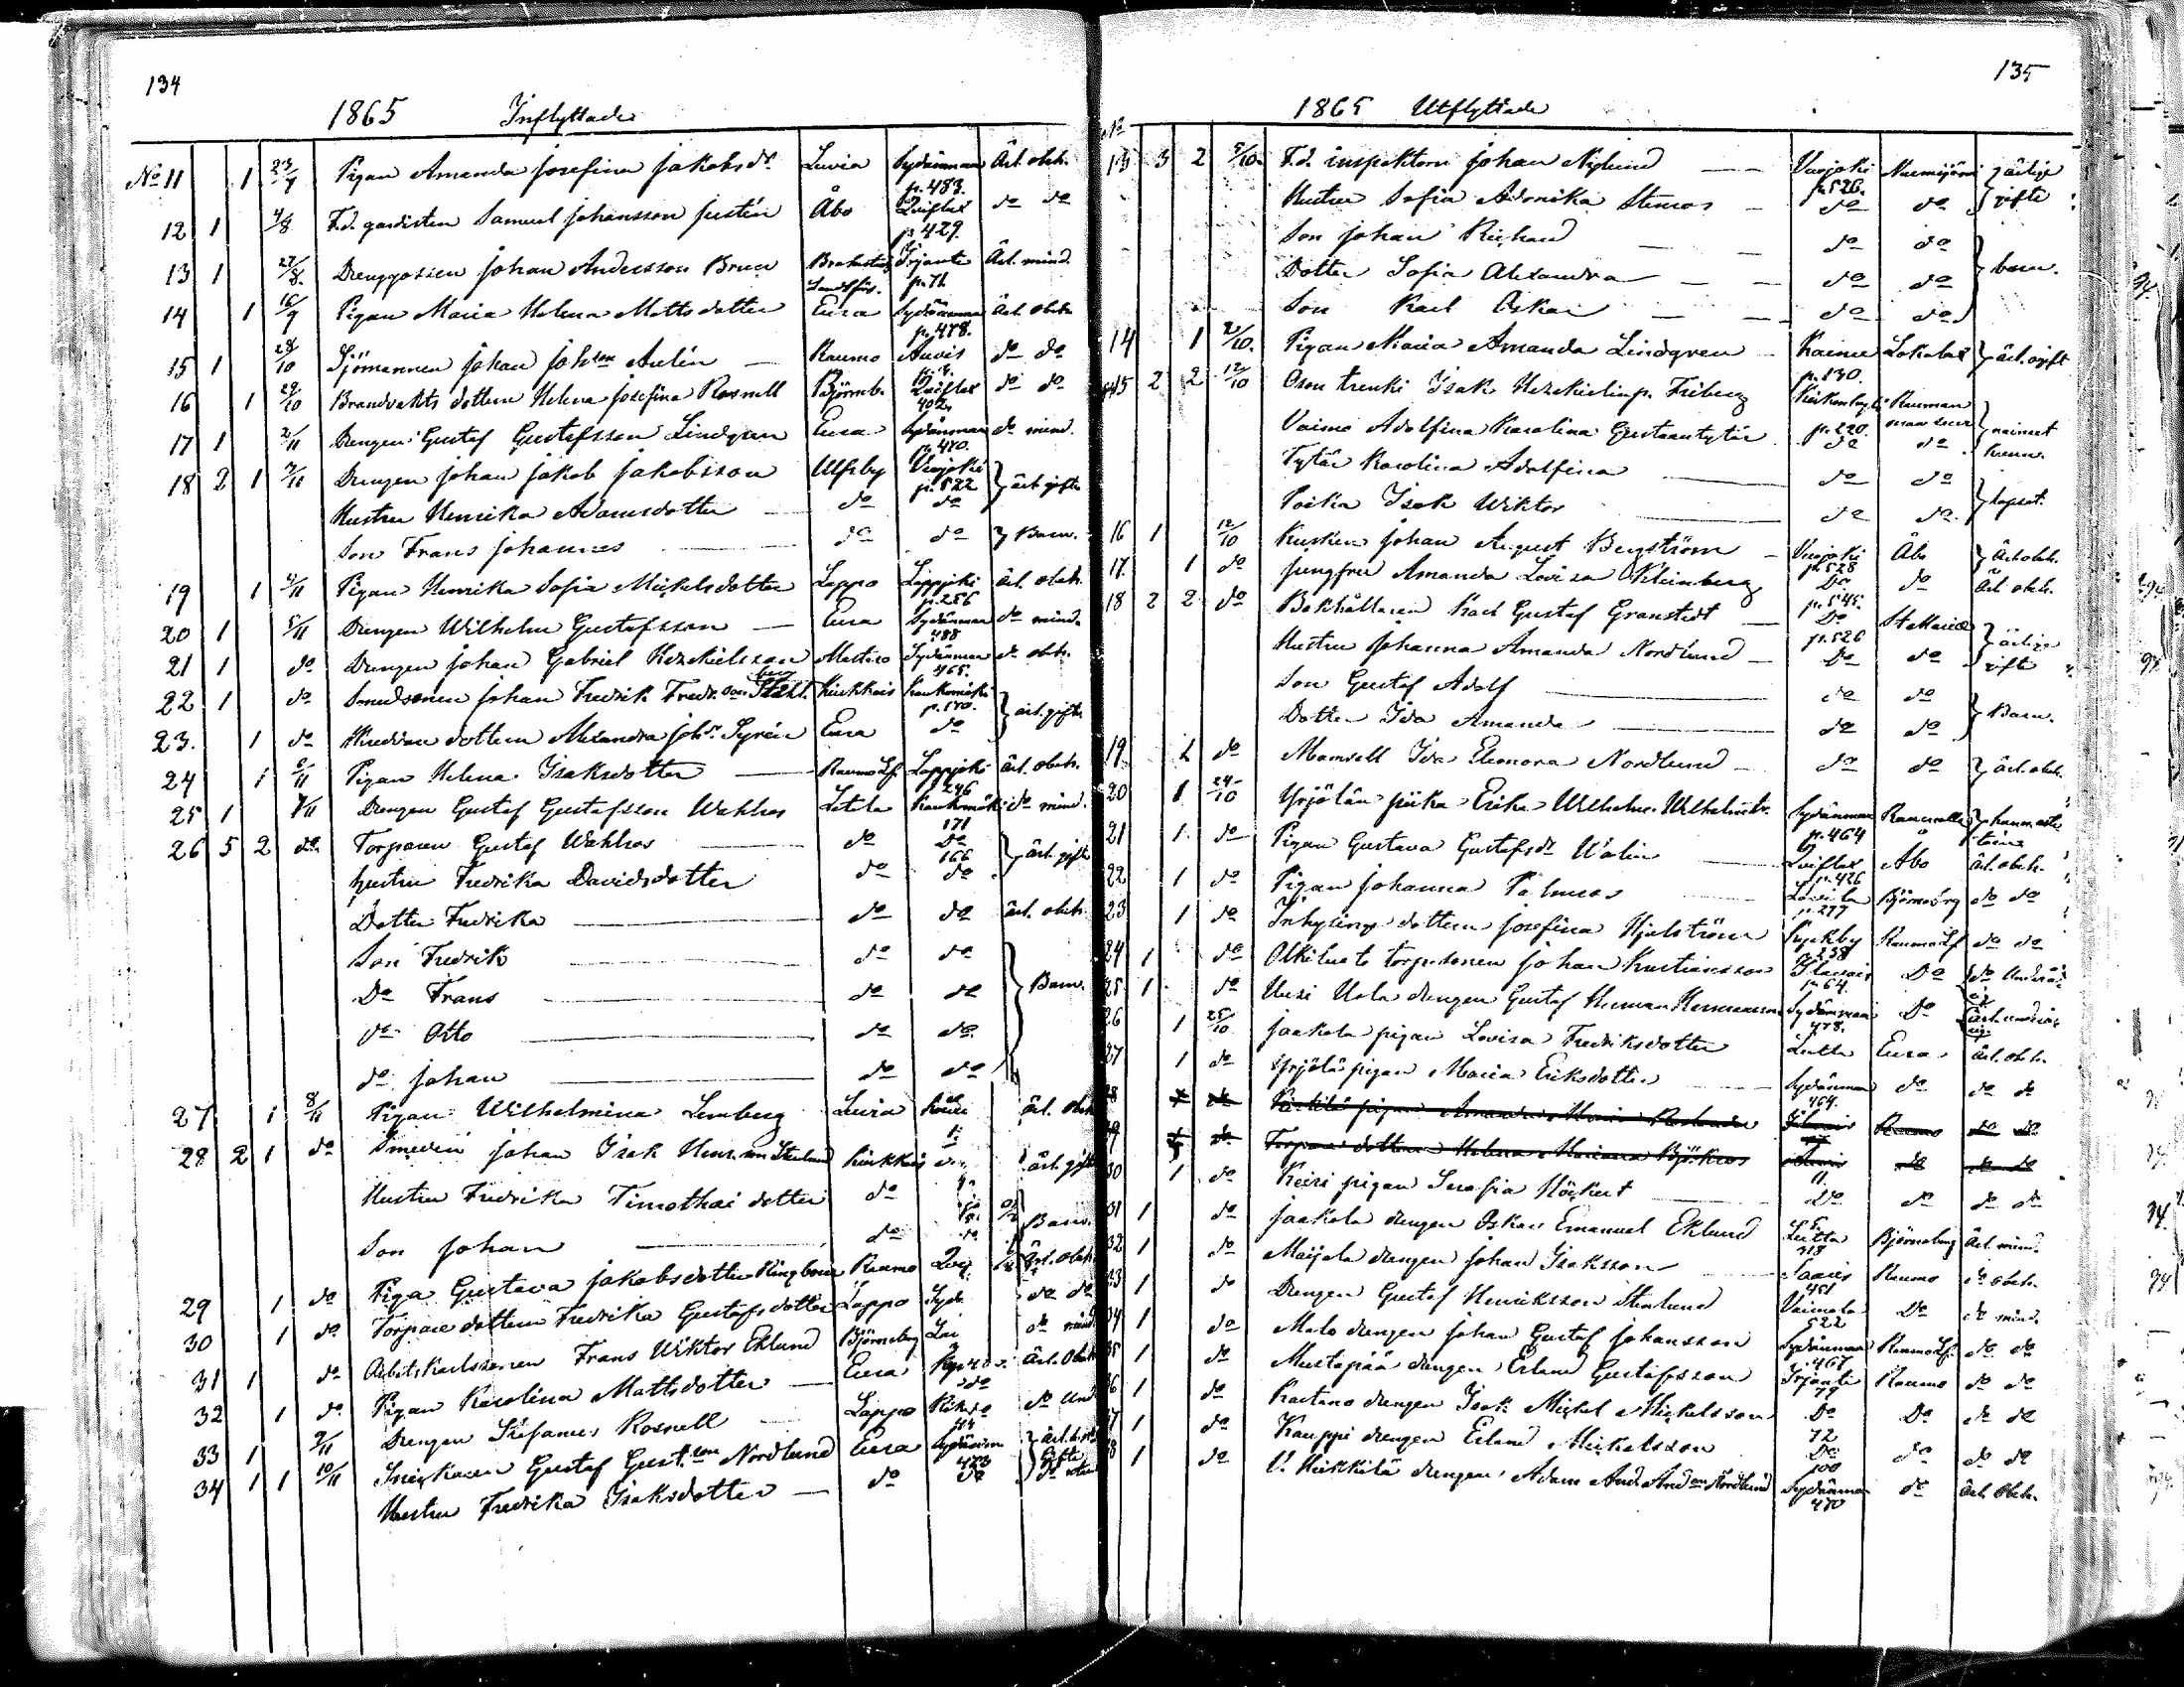 134
1865 Inflyttade
No 11 1 23/7 Pigan Amanda Josefina Jakobsdr Luvia Sydänmaa p. 483. Ärl. obeh.
12 1 4/8 F.d. gardisten Samuel Johansson Justén Åbo Qviflax p 429. do do
13 1 27/8. Drenggossen Johan Andersson Brun Brahestad Landsförs. Irjante p. 71 Ärl. mind.
14 1 16/9 Pigan Maria Helena Mattsdotter Eura Sydänmaa p. 478. Ärl. obeh.
15 1 28/10 Sjömannen Johan Johsson Aulin Raumo Auvis do do
16 1 29/10 Brandvakts dottren Helena Josefina Rosnell Björneb. Qviflax 402. do do
17 1 2/11 Drengen Gustaf Gustafsson Lindgren Eura Sydänmaa p. 470. do mind.
18 2 1 2/11 Drengen Johan Jakob Jakobsson Ulfsby Vuojoki p. 522 ärl. gifte
Hustru Henrika Adamsdotter do do
Son Frans Johannes do do Barn.
19 1 2/11 Pigan Henrika Sofia Mickelsdotter Lappo Lappjoki p. 256 ärl. obeh.
20 1 5/11 Drengen Wilhelm Gustafsson Eura Sydänmaa 488 do mind.
21 1 do Drengen Johan Gabriel Hezekielsson Sydänmaa 465. do obeh.
22 1 do Smedsonen Johan Fredrik Fredr.son Stål. Kiukkais Kaukomäki p. 170. ärl. gifte
23. 1 do dottren Alexandra Johdr Syrén Eura do
24 1 6/11 Pigan Helena Isaksdotter Raumo Lf Lappjoki 246 ärl. obeh.
25 1 7/11 Drengen Gustaf Gustafsson Wahlros Letala Kaukomäki 171 do mind.
26 5 2 do Torparen Gustaf Wahlros do Do 166 ärl. gifte
hustru Fredrika Davidsdotter do do
Dotter Fredrika do do ärl. obeh.
Son Fredrik do do
Do Frans do do Barn.
do Otto do do
do Johan do do
27 1 8/11 Pigan Wilhelmina Lemberg Luvia ärl. obeh
28 2 1 do Smeden Johan Isak Henr.son Kiukkais ärl. gifte
Hustru Fredrika Timothaidotter do
Son Johan do do Barn.
29 1 do Piga Gustava Jakobsdotter Ringbom Raumo Ärl. obeh
30 1 do Torpare dottren Fredrika Gustafsdotter Lappo Syd do do
31 1 do Arbetskarlssonen Frans Wiktor Eklund Björneborg do mind
32 1 do Pigan Karolina Mattsdotter Eura Ärl. Obeh
33 1 9/11 Drengen Stefanus Rosnell Lappo do
34 1 1 10/11 Snickaren Gustaf Gust.son Nordlund Eura Sydänm 473 gifte
Hustru Fredrika Isaksdotter do do
135
1865 Utflyttade
No
13 3 2 5/10 F.d. inspektorn Johan Nylund Vuojoki p. 526. Nurmijärvi ärlige
Hustru Sofia Adonika Stenroos do do gifte
Son Johan Richard do do
Dotter Sofia Alexandra do do barn.
Son Karl Oskar do do
14 1 2/10. Pigan Maria Amanda Lindgren Kainu p. 130. Lokalax ärl. ogift
15 2 2 12/10 Oson trenki Isak Hezekielinp. Friberg p. 220. Rauman
Vaimo Adolfina Karolina Gustaantytär do do naineet
Tytär Karolina Adolfina do do
Poika Isak Wiktor do do lapset.
16 1 12/10 Kusken Johan August Bergström Vuojoki p. 528 Åbo Ärl. obeh.
17. 1 do Jungfru Amanda Lovisa Kleinberg Do p. 545. do Ärl. obeh.
18 2 2 do Bokhållaren Karl Gustaf Granstedt Do p. 526 St Marie ärlige
Hustru Johanna Amanda Nordlund Do do gifte
Son Gustaf Adolf do do
Dotter Ida Amanda do do Barn.
19 1 do Mamsell Ida Eleonora Nordlund do do ärl. obeh.
20 1 24/10 Yrjölän piika Erika Wilhelmina Wilhelmintr. Sydänmaa p. 464
21 1 do Pigan Gustava Gustafsdr Walin Qviflax p. 426 Åbo ärl. obeh.
22 1 do Pigan Johanna Palmros p. 277 Björneborg do do
23 1 do Inhysings dottren Josefina Hjelström Kuckby p. 238 Raumo Lf do do
24 1 do Olkiluoto torparsonen Johan Kustiansson p. 64. Do
25 1 do Uusi Uola drengen Gustaf Herman Hermansson Sydänmaa 478. Do
26 1 25/10 Jaakola pigan Lovisa Fredriksdotter Lutta Eura ärl. obeh.
27 1 do Yrjölä pigan Maria Eriksdotter Sydänmaa 464. do do do
28 do pigan Amanda Maria Raumo do do
29 do Torpare dottren Helena Mariana Björkroos 11. do do do
30 1 do Keisi pigan Serafia Höckert Do do do do
31 1 do Jaakola drengen Oskar Emanuel Eklund Lutta 313 Björneborg Ärl. mind.
32 1 do Maijala drengen Johan Isaksson Saaris 451 Raumo do obeh.
33 1 do Drengen Gustaf Henriksson Stenlund Vaimala 522 Do do mind.
34 1 do Malo drengen Johan Gustaf Johansson Sydänmaa 467 Raumo Lf. do do
35 1 do Mustapää drengen Erland Gustafsson Irjante 79 Raumo do do
36 1 do Raetano drengen Isak Mickel Mickelsson Do 72 Do do do
37 1 do Kauppi drengen Erland Mickelsson Do 100 do do do
38 1 do V. Heikkilä drengen Adam And. And.son Nordlund Sydänmaa 470 do Ärl. Obeh.